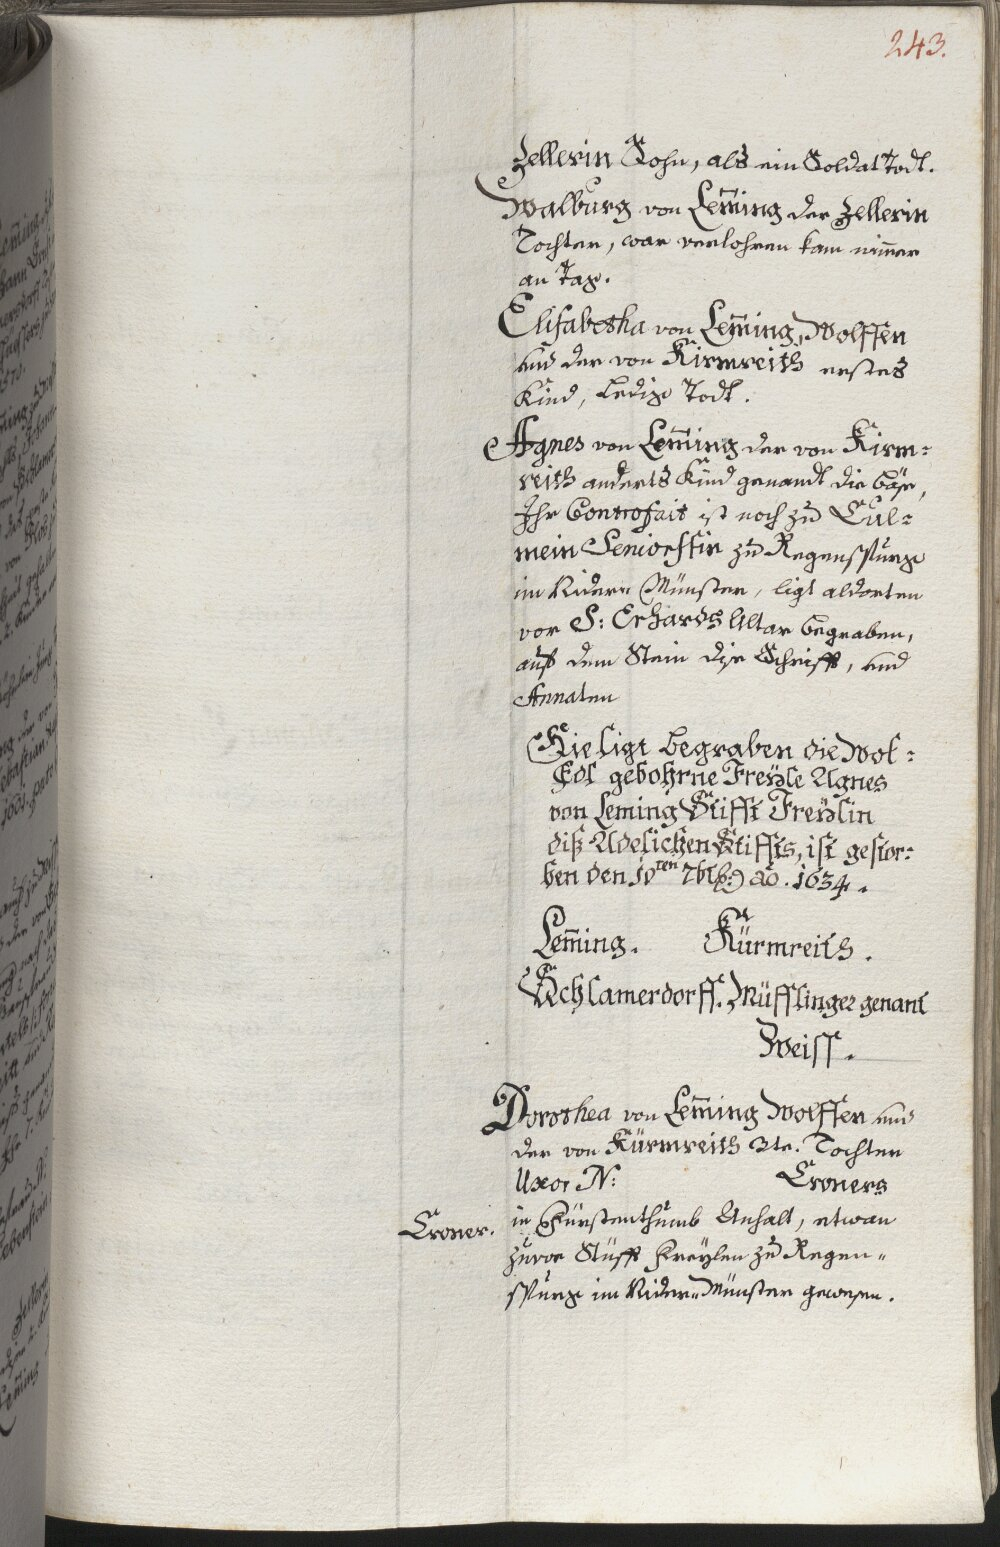 243.
Zellerin Sohn, als ein Soldat Todt.
Walburg von Lem̄ing der Zellerin
Tochter, war verlohren kam nim̄er
an Tag.
Elisabetha von Lem̄ing, Wolffen
und der von Kirmreith erstes
Kind, Ledig Todt.
Agnes von Lem̄ing der von Kirm=
reith anderts Kind genandt die
Ihr Controfait ist noch zu Cul=
mein zu Regenspurg
im Nidern Münster, ligt aldorten
vor S: Erhards Altar begraben,
auf dem Stein dise Schrifft, und
Annaten
Hie ligt begraben die wol=
Edl gebohrne Freÿle Agnes
von Leming Stifft Freÿlin
diß Adelichen Stiffts, ist gestor=
ben den 10ten 7b[ris] ao. 1634.
Lem̄ing. Kürmreith.
Schlamerdorff. Müfflinger genant
Weiss.
Dorothea von Lem̄ing Wolffen und
der von Kürmreith 3te. Tochter
Uxor N: Croners
Croner.
in Fürstenthumb Anhalt, etwan
zuvor Stüfft Freÿlen zu Regen=
spurg im Nider=Münster gewesen.